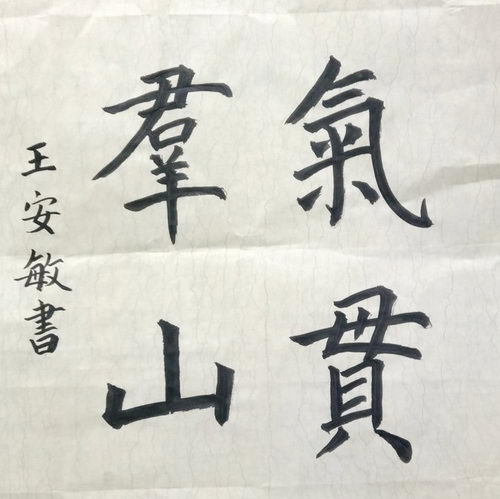 氣貫
羣山
王安敏書